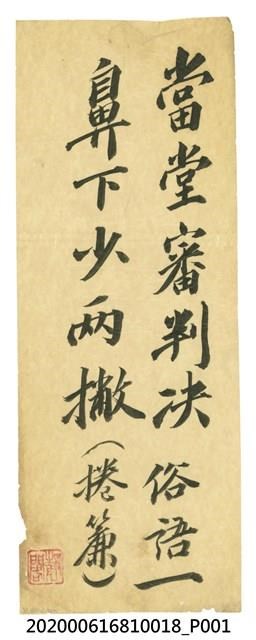 當堂審判決 俗語一
鼻下少两撇（捲簾）
202000616810018_P001